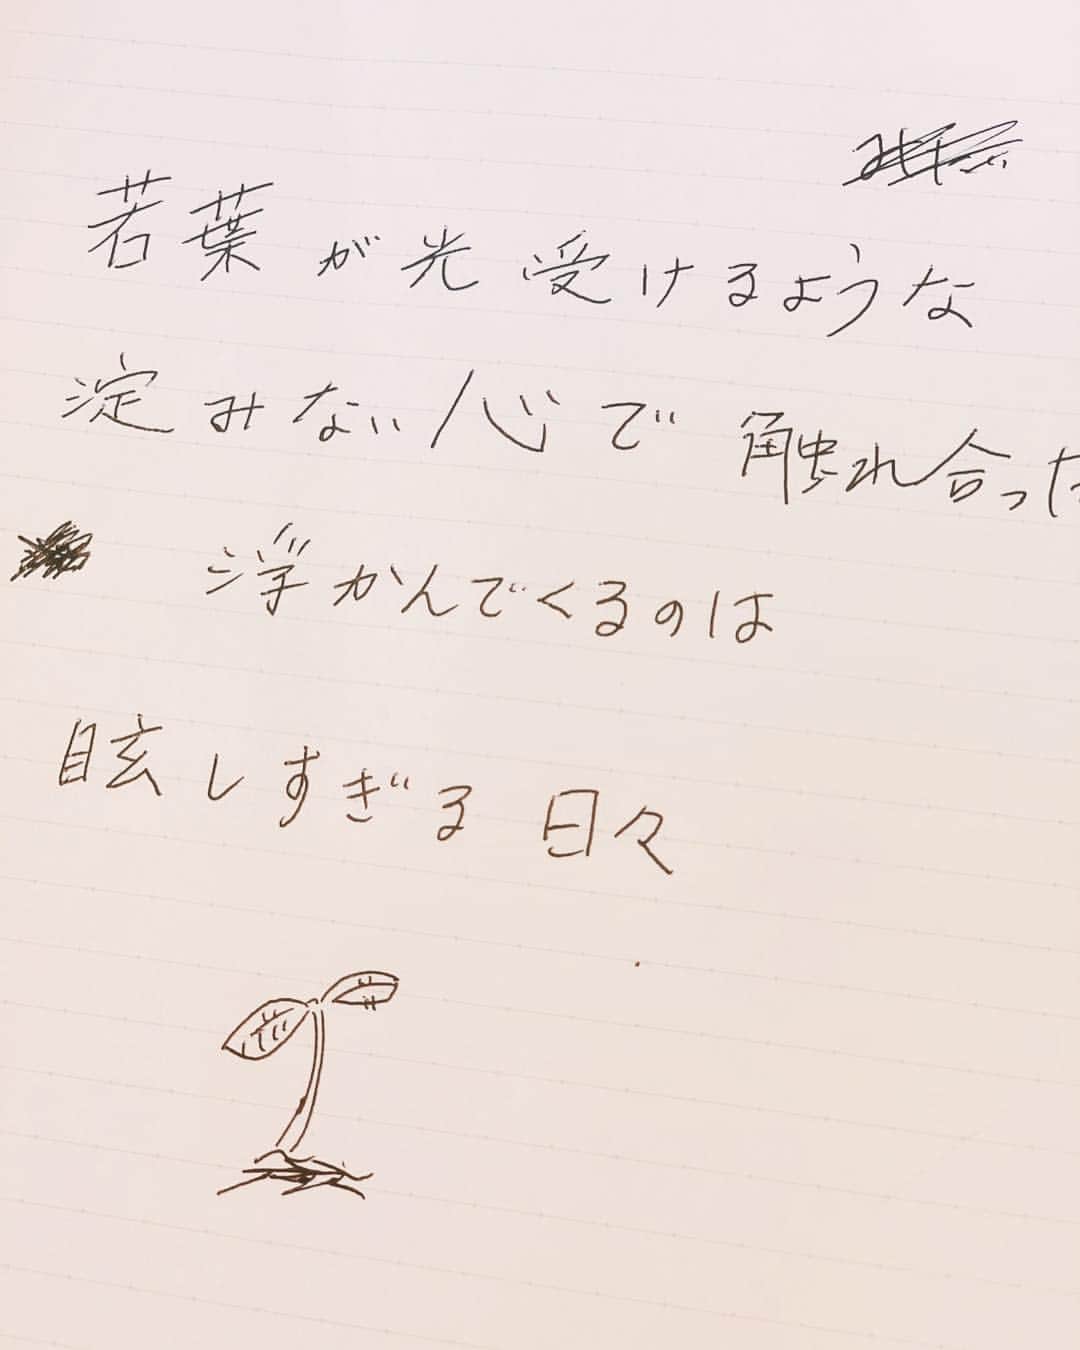 若葉が光受けるような
淀みない心で触れ合った
浮かんでくるのは
眩しすぎる日々